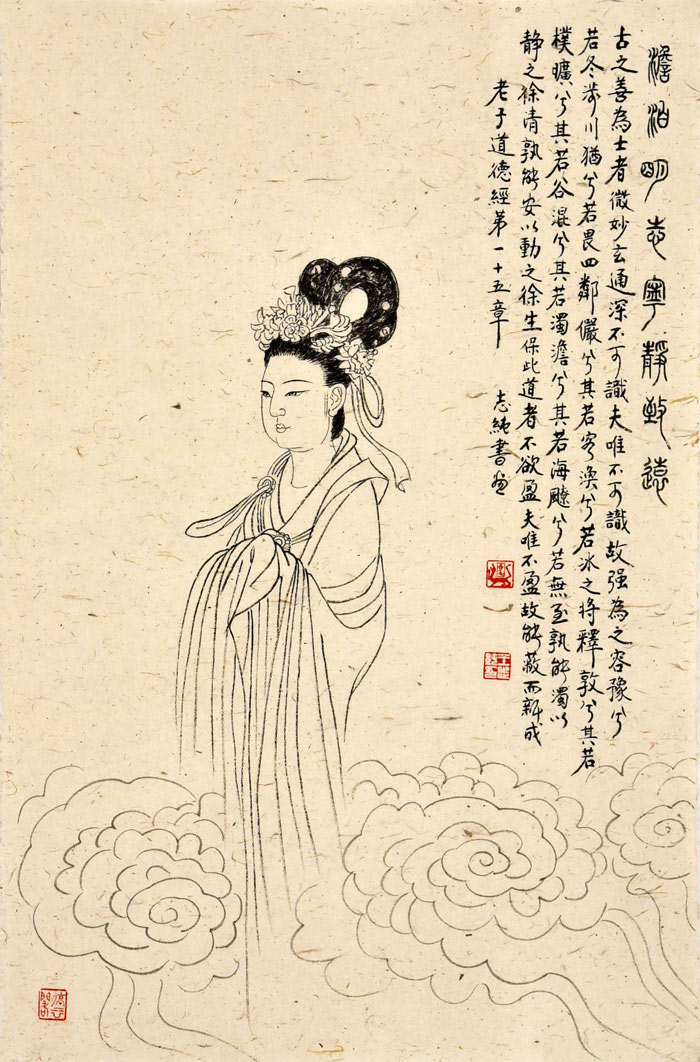 澹泊明志寧靜致遠
古之善為士者微妙玄通深不可識夫唯不可識故强為之容豫兮
若冬涉川猶兮若畏四鄰儼兮其若客渙兮若冰之將釋敦兮其若
樸曠兮其若谷混兮其若濁澹兮其若海飂兮若無至孰能濁以
静之徐清孰能安以動之徐生保此道者不欲盈夫唯不盈故能蔽而新成
老子道德經第一十五章
志純書畫